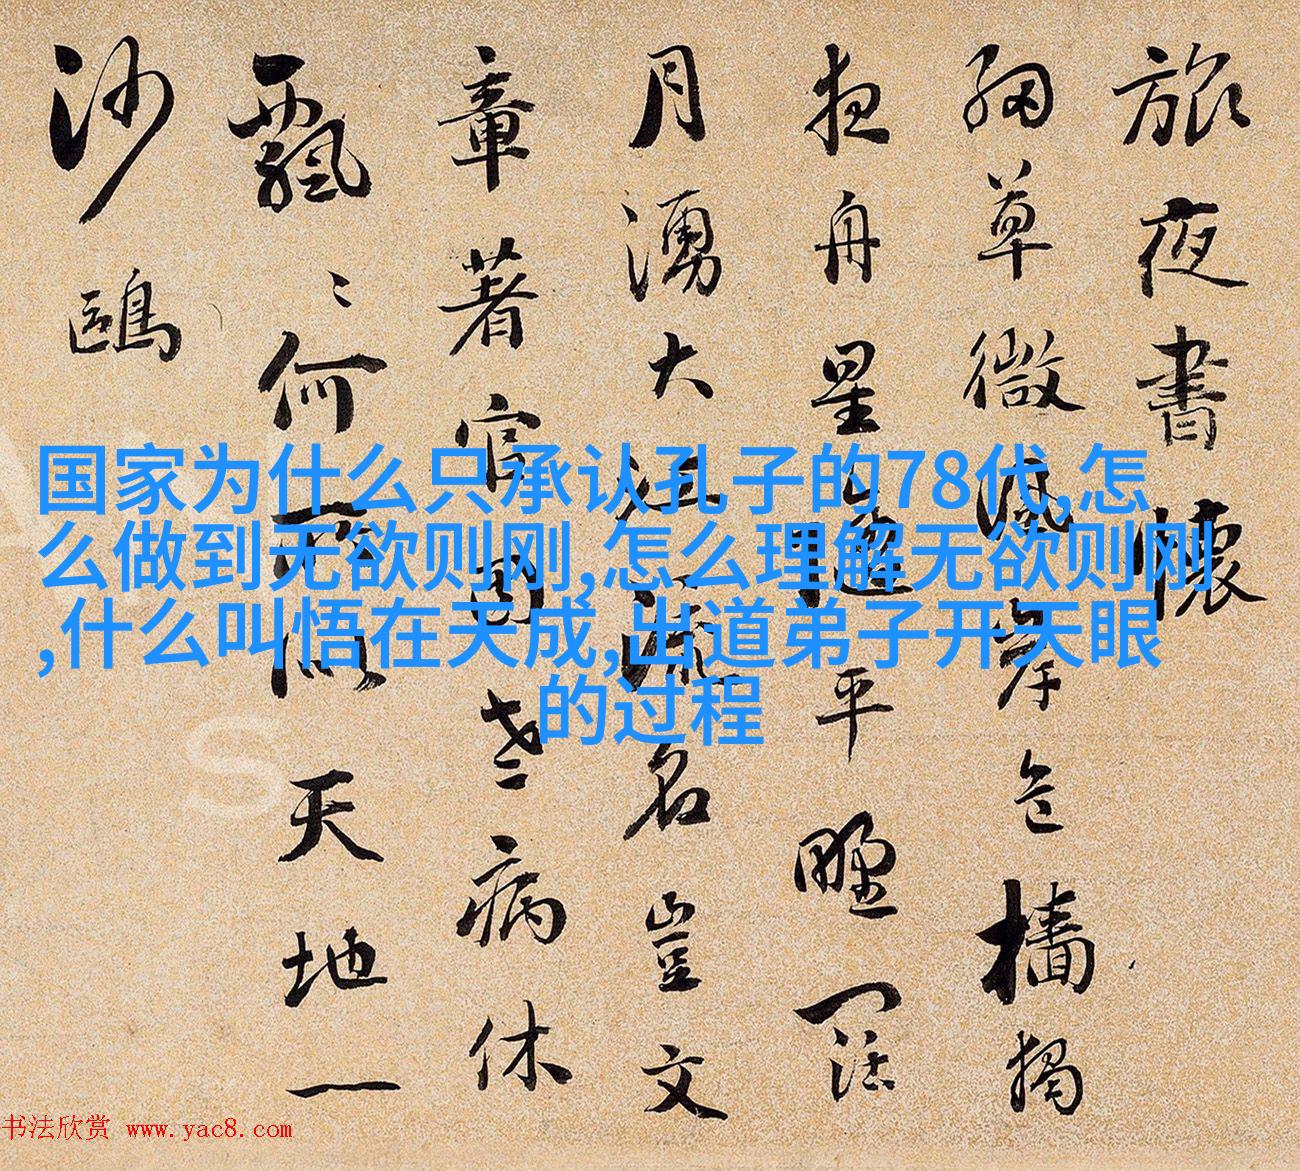 旅夜書懷
細草微風岸危檣獨
夜舟星隨平野闊
月湧大江流名豈文
章著官因老病休
飄〻何所似天地一
沙鷗
国家为什么只承认孔子的78代,怎
么做到无欲则刚,怎么理解无欲则刚
,什么叫悟在天成,出道弟子开天眼
的过程
书法欣赏 www.yac8.com